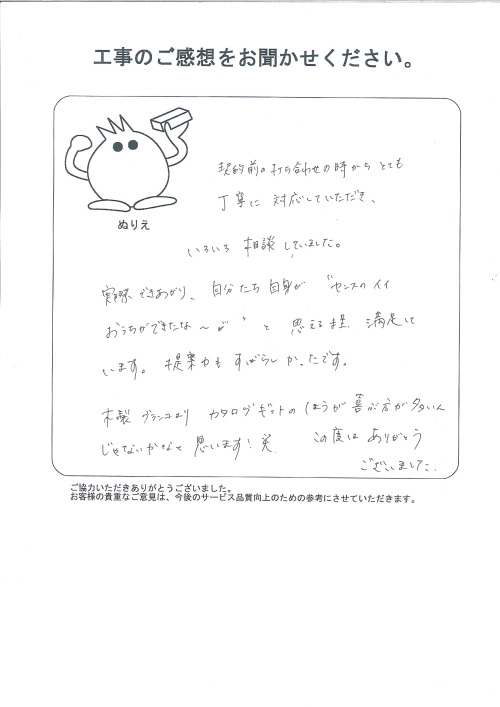 工事のご感想をお聞かせください。
ぬりえ
契約前の打ち合わせの時から とても
丁寧に 対応していただき、
いろいろ 相談 していました。
実際 できあがり、自分たち自身が "センスのイイ
おうちができたな～♪" と 思える程 満足して
います。提案力も すばらしかったです。
木製 ブランコより カタログギフトの ほうが 喜ぶ方が多いん
じゃないかなと 思います！笑 この度は ありがとう
ございました。
ご協力いただきありがとうございました。
お客様の貴重なご意見は、今後のサービス品質向上のための参考にさせていただきます。